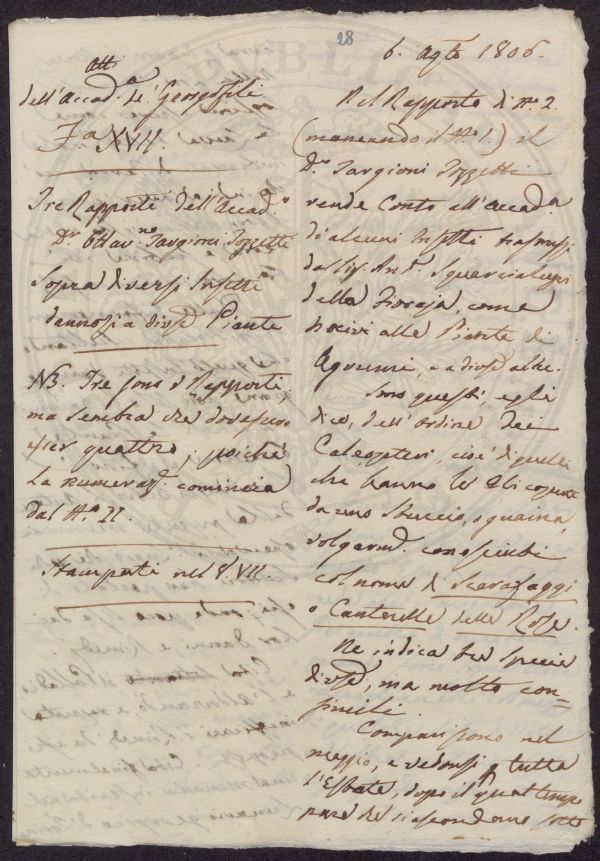 28
6. Agto 1806.
Atti
dell'Accad.a de' Georgofili
T.o XVII.
Tre Rapporti dell'Accad.o
Dr Ottav.no Targioni Tozzetti
Sopra diversi Insetti
dannosi a divse Piante
NB. Tre sono i Rapporti
ma sembra che dovessero
esser quattro, poiché
la numeraz.e comincia
dal N.o II.
Stampati nel T. VII.
Nel Rapporto di N.o 2.
(mancando il N.o 1.) il
D.r Targioni Tozzetti
rende Conto all'Accad.a
di alcuni Insetti trasmessi
dal Sig.r Ant.o Squarcialupi
della Fioraja, come
nocivi alle Piante di
Agrumi, e a divse altre.
Sono questi, egli
dice, dell'Ordine dei
Coleopteri, cioè di quelli
che hanno le Ali coperte
da uno Stuccio, o guaina,
volgarme. conosciuti
col nome di Scarafaggi
o Canterelle delle Rose.
Ne indica tre specie
divse, ma molto con=
simili.
Compariscono nel
maggio, e vedonsi p tutta
l'Estate, dopo il qual tempo
pare che si ascondano sotto